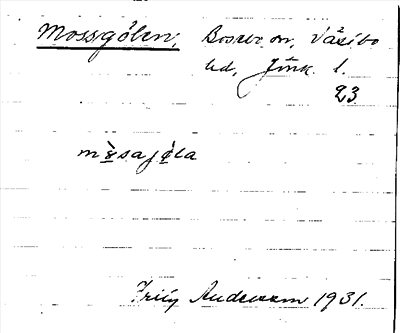 Mossgölen, Bosebo sn, Västbo
hd, Jönk. l.
23.
mȯsajȯ̈la
Fritz Andersson 1931.